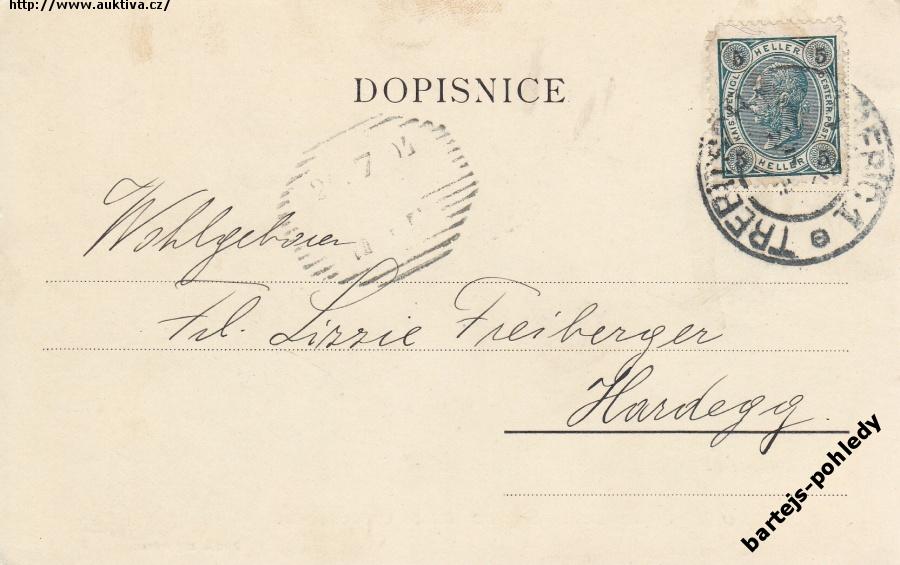 http://www.auktiva.cz/
DOPISNICE
5 HELLER 5
KAIS. KÖNIGL. OESTERR. POST.
5 HELLER 5
TREBI
7 04
Wohlgeboren
Frl. Lizzie Freiberger
Hardegg.
bartejs-pohledy